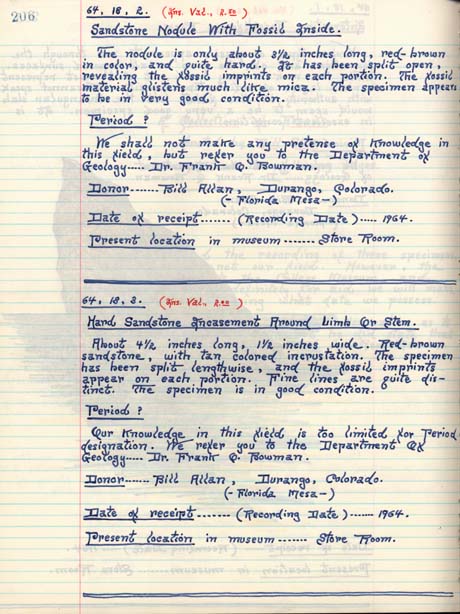 206
64, 18, 2. (Ins. Val., 2.50)
Sandstone Nodule With Fossil Inside.
The nodule is only about 3½ inches long, red-brown
in color, and quite hard. It has been split open,
revealing the fossil imprints on each portion. The fossil
material glistens much like mica. The specimen appears
to be in very good condition.
Period ?
We shall not make any pretense of knowledge in
this field, but refer you to the Department of
Geology---- Dr. Frank O. Bowman.
Donor------- Bill Allan, Durango, Colorado.
(- Florida Mesa -)
Date of receipt------- (Recording Date)----- 1964.
Present location in museum------- Store Room.
64, 18, 3. (Ins. Val., 2.50)
Hard Sandstone Encasement Around Limb Or Stem.
About 4½ inches long, 1½ inches wide. Red-brown
sandstone, with tan colored incrustation. The specimen
has been split lengthwise, and the fossil imprints
appear on each portion. Fine lines are quite dis-
tinct. The specimen is in good condition.
Period ?
Our knowledge in this field is too limited for Period
designation. We refer you to the Department Of
Geology---- Dr. Frank O. Bowman.
Donor------ Bill Allan, Durango, Colorado.
(- Florida Mesa -)
Date of receipt------- (Recording Date)------ 1964.
Present location in museum------- Store Room.